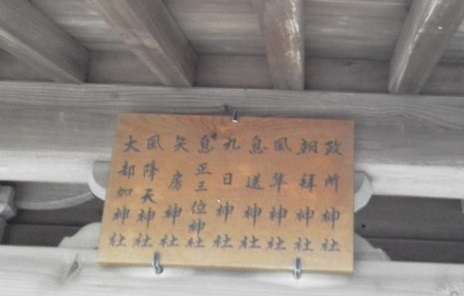 政所神社
朝拝神社
風隼神社
息送神社
九日神社
息正三位神社
矢房神社
風降天神社
大都加神社